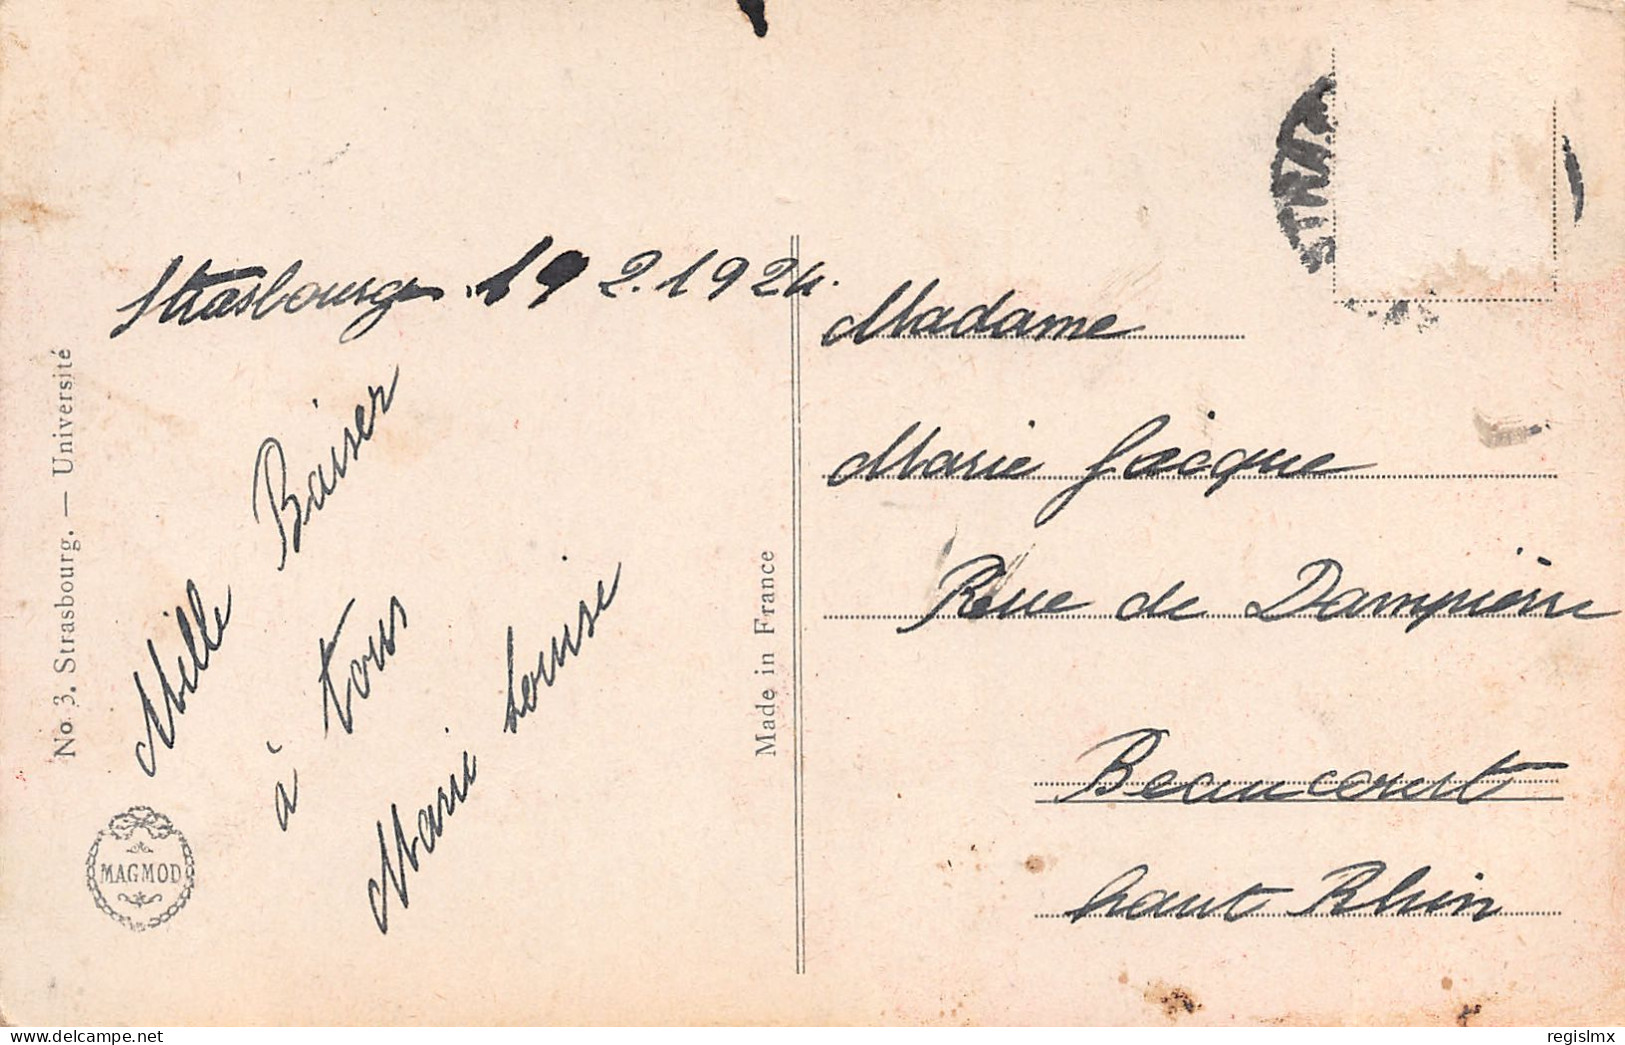 Strasbourg. 19 2. 1924.
Mille Baiser
à tous
Marie Louise
No 3. Strasbourg. — Université
MAGMOD
Made in France
Madame
Marie Jacque
Rue de Dampierre
Beaucourt
haut Rhin
regislmx